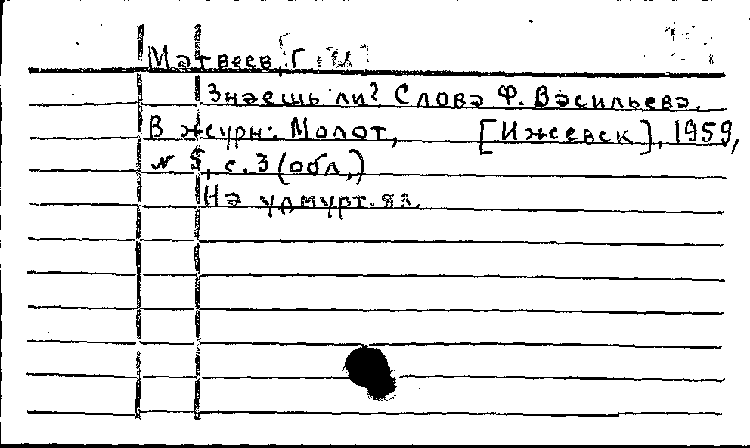 Матвеев, Г.
Знаешь ли? Слова Ф. Васильева.
В журн: Молот, [Ижевск], 1959,
№ 5, с. 3 (обл.)
На удмурт. яз.